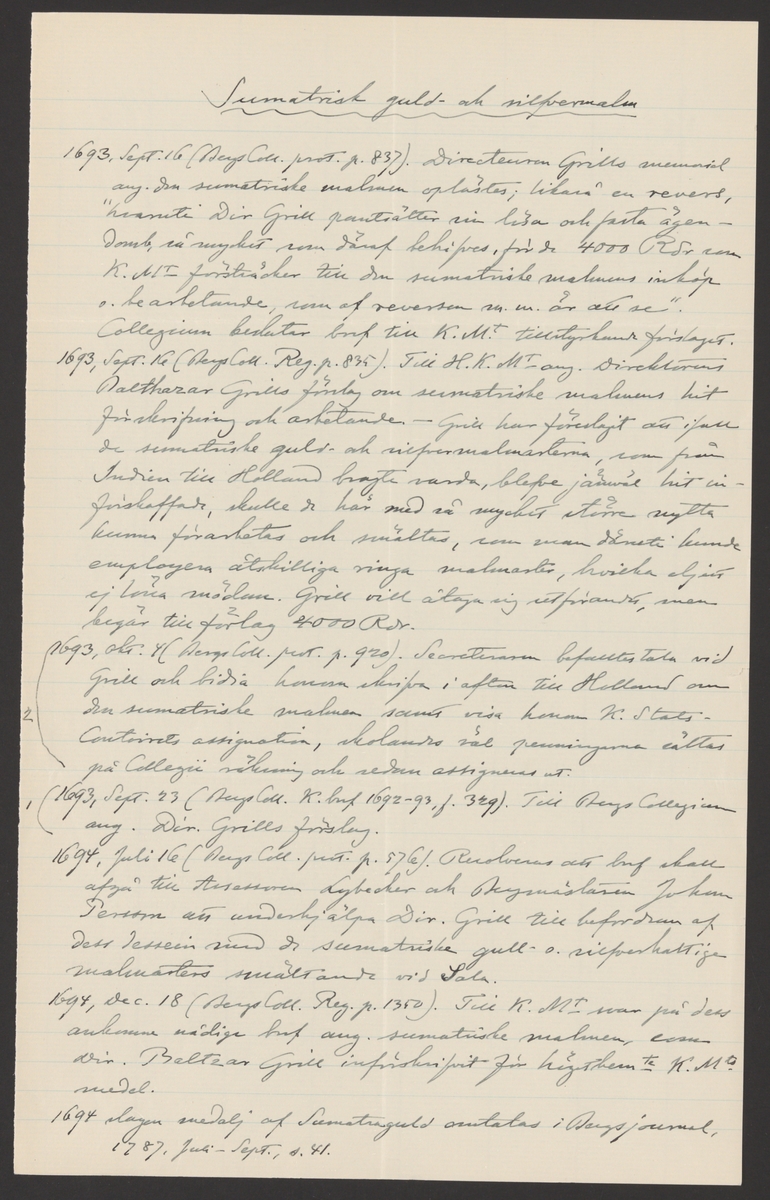 Sumatrisk guld- och silfvermalm
1693, Sept. 16 (BergsColl. prot. p. 837). Directeuren Grills memorial
ang. den sumatriske malmen oplästes; likaså en revers,
"hvaruti Dir Grill pantsätter sin lösa och fasta ägen-
domb, så mycket som däraf behöfves, för de 4000 Rdr som
K. Mt försträcker till den sumatriske malmens inköp
o. bearbetande, som af reversen m. m. är att se".
Collegium beslutar bref till K. Mt tillstyrkande förslaget.
1693, Sept. 16 (BergsColl. Reg. p. 835). Till H. K. Mt ang. Direktörens
Balthazar Grills förslag om sumatriske malmens hit
förskrifning och arbetande. — Grill har föreslagit att ifall
de sumatriske guld- och silfvermalmarterna, som från
Indien till Holland bragte varda, blefve jämväl hit in-
förskaffade, skulle de här med så mycket större nytta
kunna förarbetas och smältas, som man däruti kunde
employera åtskilliga ringa malmarter, hvilka eljest
ej löna mödan. Grill vill åtaga sig utförandet, men
begär till förlag 4000 Rdr.
1693, Okt. 4 (BergsColl. prot. p. 920). Secreteraren befalltes tala vid
Grill och bidia honom skrifva i afton till Holland om
2 den sumatriske malmen samt visa honom K. Stats-
Contoirets assignation, skolandes väl penningarna sättas
på Collegii räkning och sedan assigneras ut.
1 1693, Sept. 23 (BergsColl. K. bref 1692-93, f. 329). Till Bergs Collegium
ang. Dir. Grills förslag.
1694, Juli 16 (BergsColl. prot. p. 576). Resolveras att bref skall
afgå till Assessoren Lybecker och Bergmästaren Johan
Persson att underhjälpa Dir. Grill till befordran af
dess dessein med de sumatriske gull- o. silfverhaltige
malmarters smältande vid Sala.
1694, Dec. 18 (BergsColl. Reg. p. 1350). Till K. Mt svar på dess
ankomne nådige bref ang. sumatriske malmen, som
Dir. Baltzar Grill införskrifvit för högstbemte K. Mts
medel.
1694 slagen medalj af Sumatraguld omtalas i Bergsjournal,
1787, Juli - Sept., s. 41.